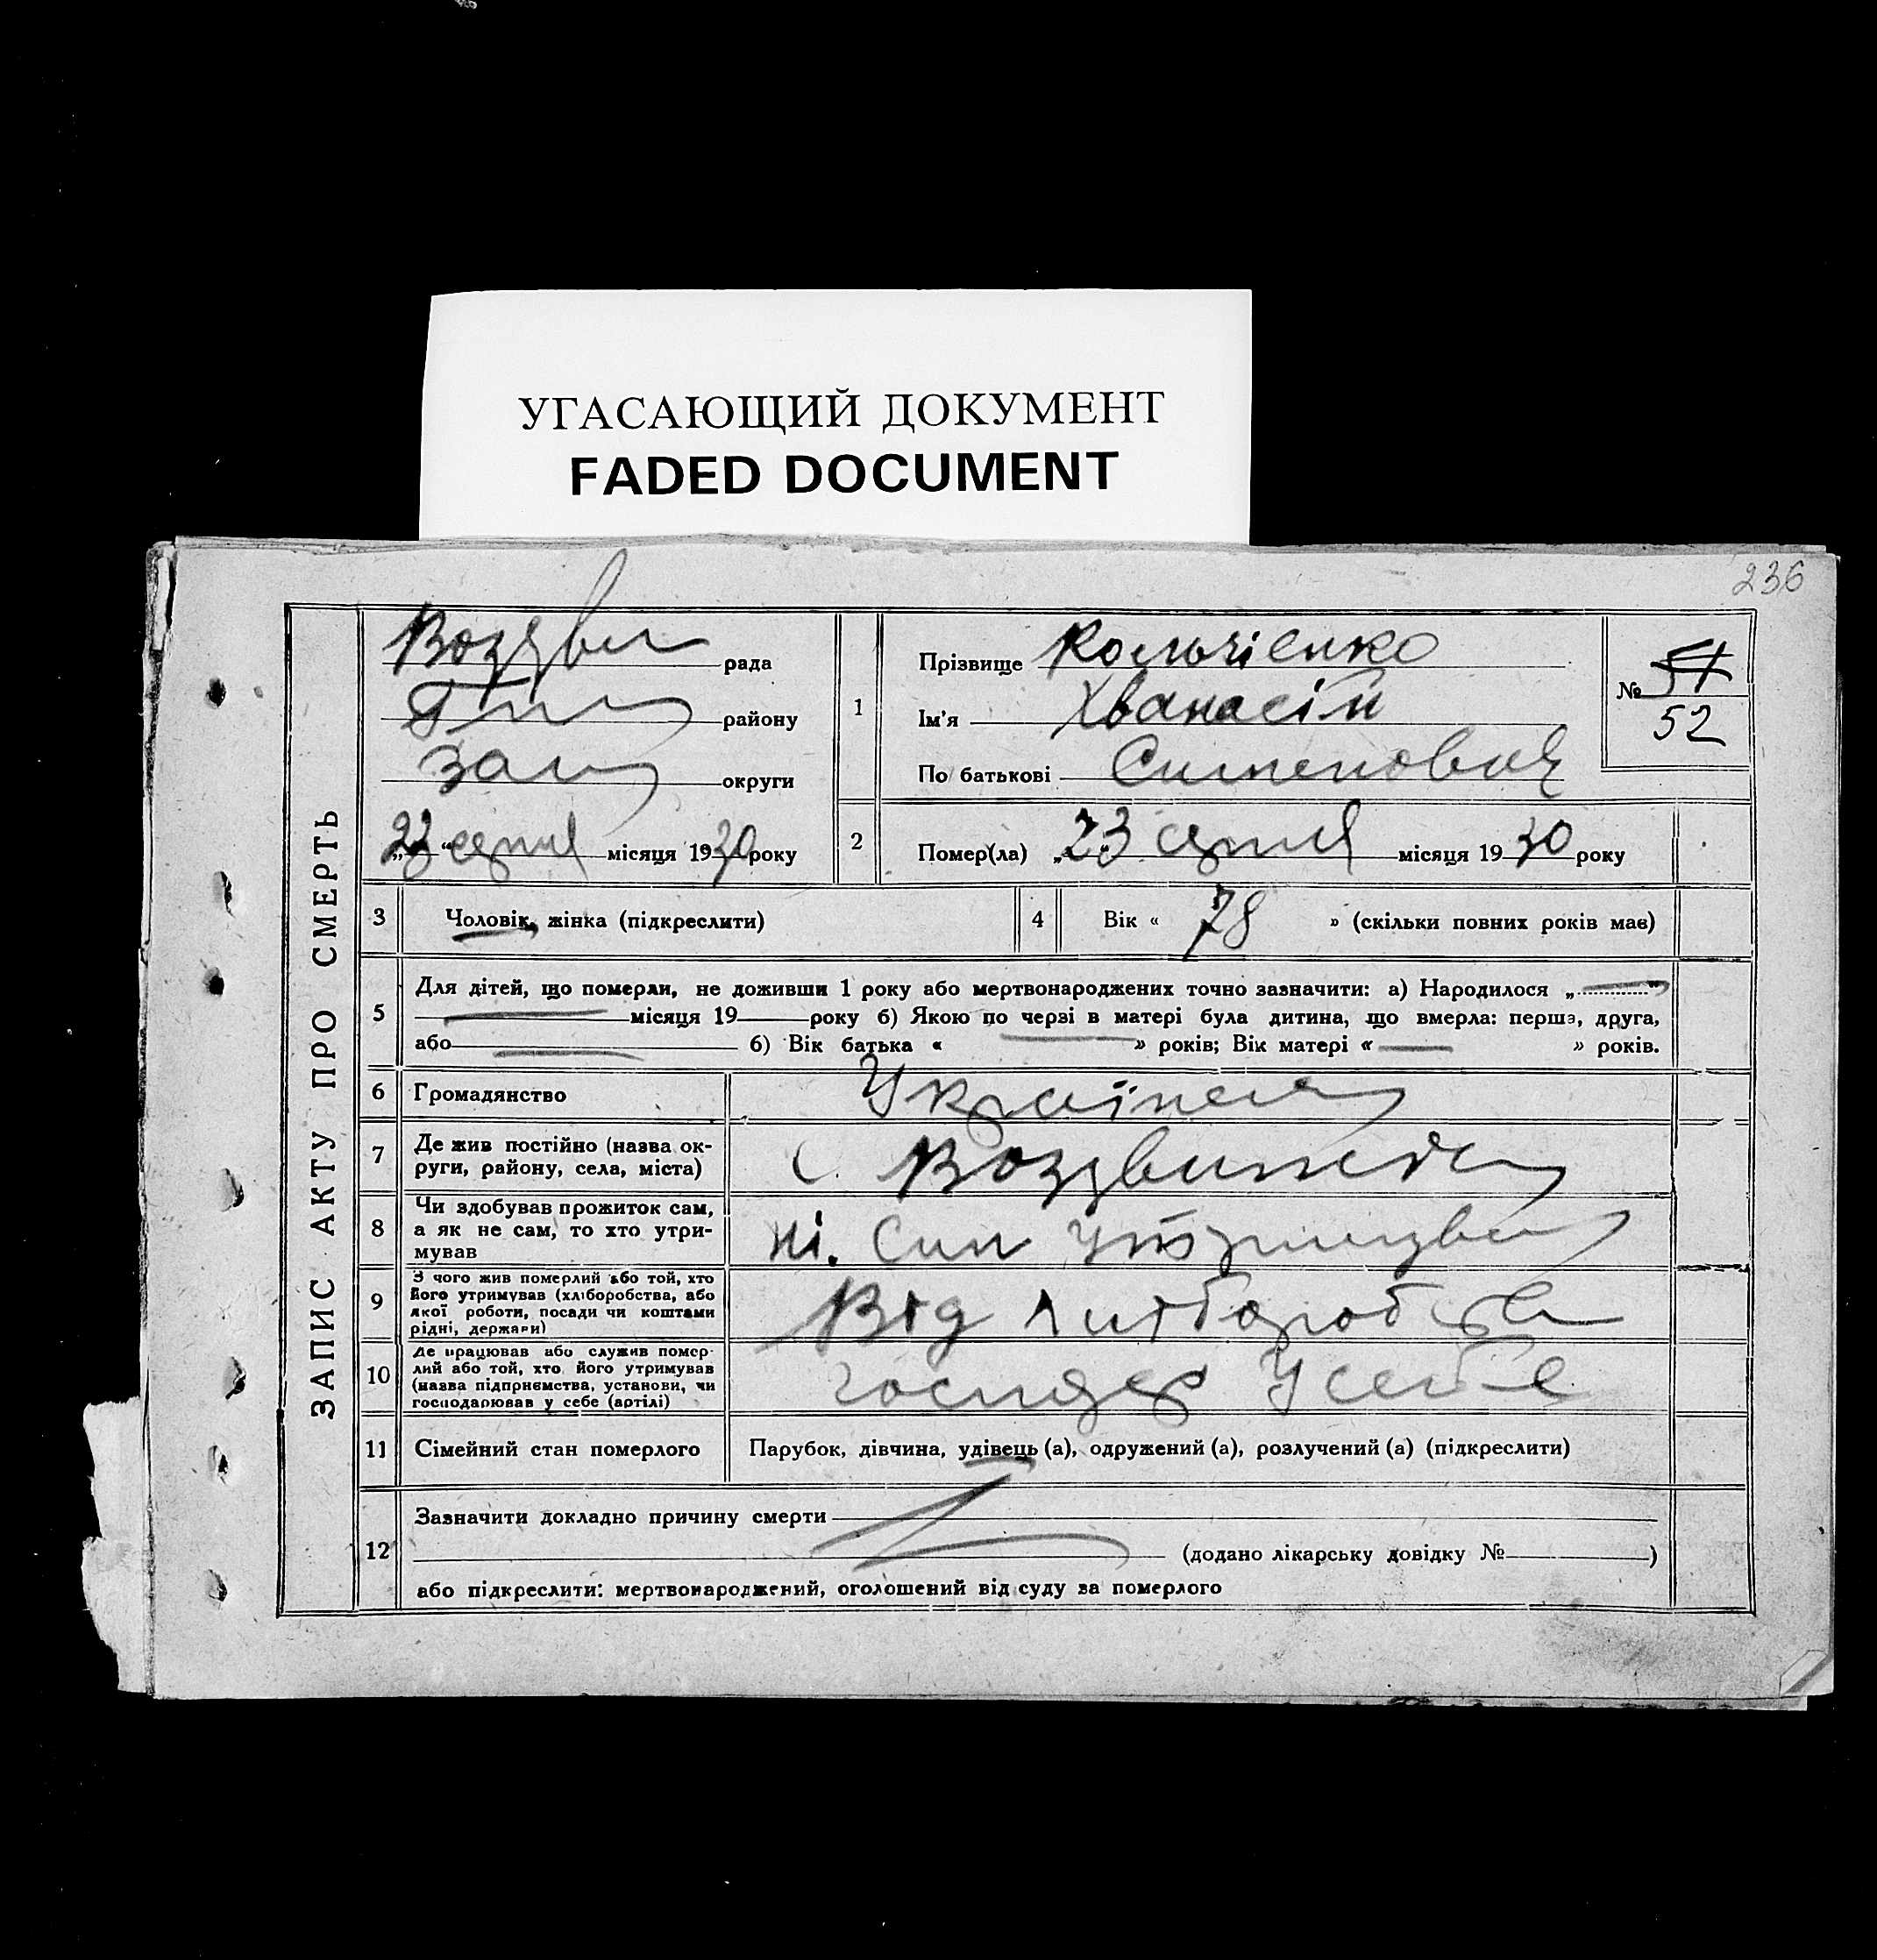 УГАСАЮЩИЙ ДОКУМЕНТ
FADED DOCUMENT
236
ЗАПИС АКТУ ПРО СМЕРТЬ
Воздви рада
району
Зап округи
„23“ серпня місяця 1930 року
1
Прізвище Кольчіенко
Ім'я Хванасій
По батькові Сименович
№ 51
52
2
Помер(ла) „23 серпня місяця 1930 року
3 Чоловік, жінка (підкреслити)
4 Вік « 78 » (скільки повних років має)
5
Для дітей, що померли, не доживши 1 року або мертвонароджених точно зазначити: а) Народилося „ “
місяця 19 року б) Якою по черзі в матері була дитина, що вмерла: перша, друга,
або б) Вік батька « » років; Вік матері « » років.
6 Громадянство Українец
7 Де жив постійно (назва ок-
руги, району, села, міста)
с. Воздвиженка
8 Чи здобував прожиток сам,
а як не сам, то хто утри-
мував
ні. Син утримував
9 З чого жив померлий або той, хто
його утримував (хліборобства, або
якої роботи, посади чи коштами
рідні, держави)
Від хліборобства
10 Де працював або служив помер-
лий або той, хто його утримував
(назва підприємства, установи, чи
господарював у себе (артілі)
господар у себе
11 Сімейний стан померлого Парубок, дівчина, удівець (а), одружений (а), розлучений (а) (підкреслити)
12
Зазначити докладно причину смерти
(додано лікарську довідку № )
або підкреслити: мертвонароджений, оголошений від суду за померлого